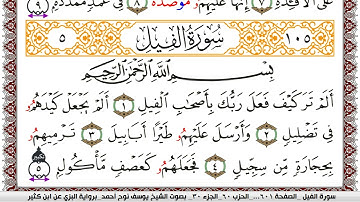 عَلَى ٱلْأَفْـِٔدَةِ ٧ إِنَّهَا عَلَيْهِمُۥ مُوصَدَةٌ ٨ فِي عَمَدٍ مُمَدَّدَةٍ ٩
١٠٥ سُورَةُ الفِيلِ ٥
بِسْمِ ٱللَّهِ ٱلرَّحْمَٰنِ ٱلرَّحِيمِ
أَلَمْ تَرَ كَيْفَ فَعَلَ رَبُّكَ بِأَصْحَٰبِ ٱلْفِيلِ ١ أَلَمْ يَجْعَلْ كَيْدَهُمُۥ
فِي تَضْلِيلٍ ٢ وَأَرْسَلَ عَلَيْهِمُۥ طَيْرًا أَبَابِيلَ ٣ تَرْمِيهِمُۥ
بِحِجَارَةٍ مِّن سِجِّيلٍ ٤ فَجَعَلَهُمُۥ كَعَصْفٍ مَّأْكُولٍ ٥
سورة الفيل _الصفحة ٦٠١,,,, الحزب ٦٠_الجزء ٣٠_ بصوت الشيخ يوسف نوح أحمد_برواية البزي عن ابن كثير